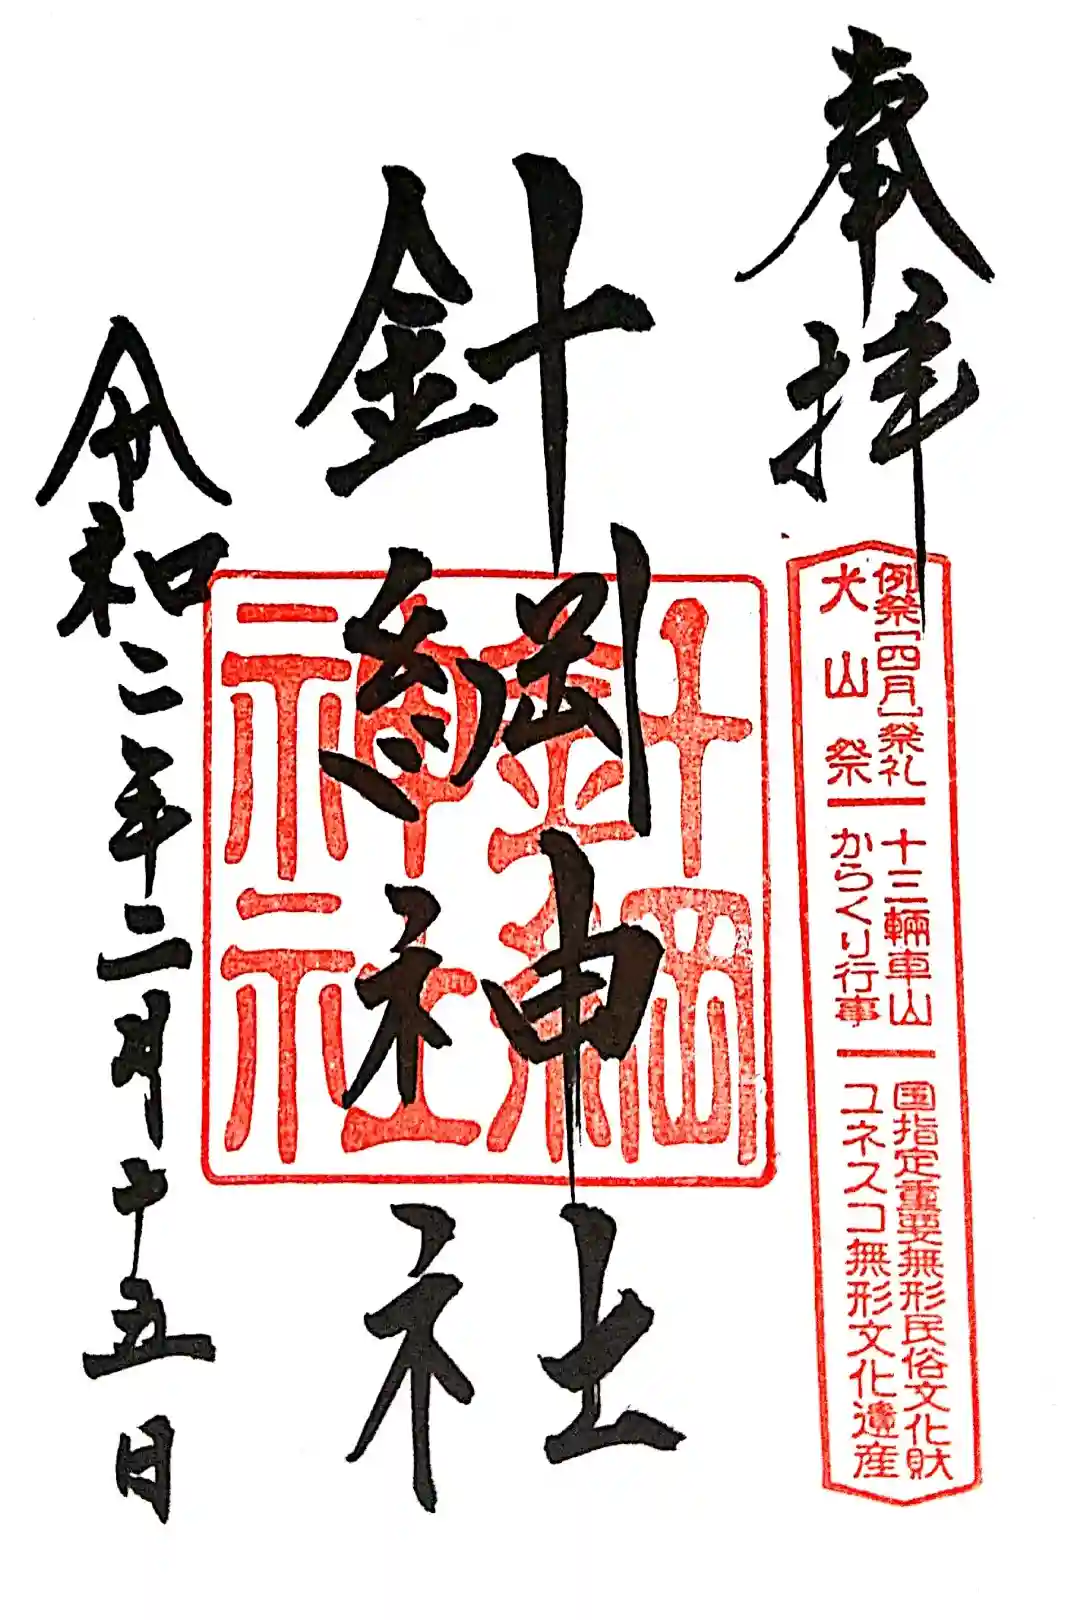 奉拝
例祭[四月]祭礼
犬山祭
十三輛車山
からくり行事
国指定重要無形民俗文化財
ユネスコ無形文化遺産
針綱神社
針綱
神社
令和二年二月十五日